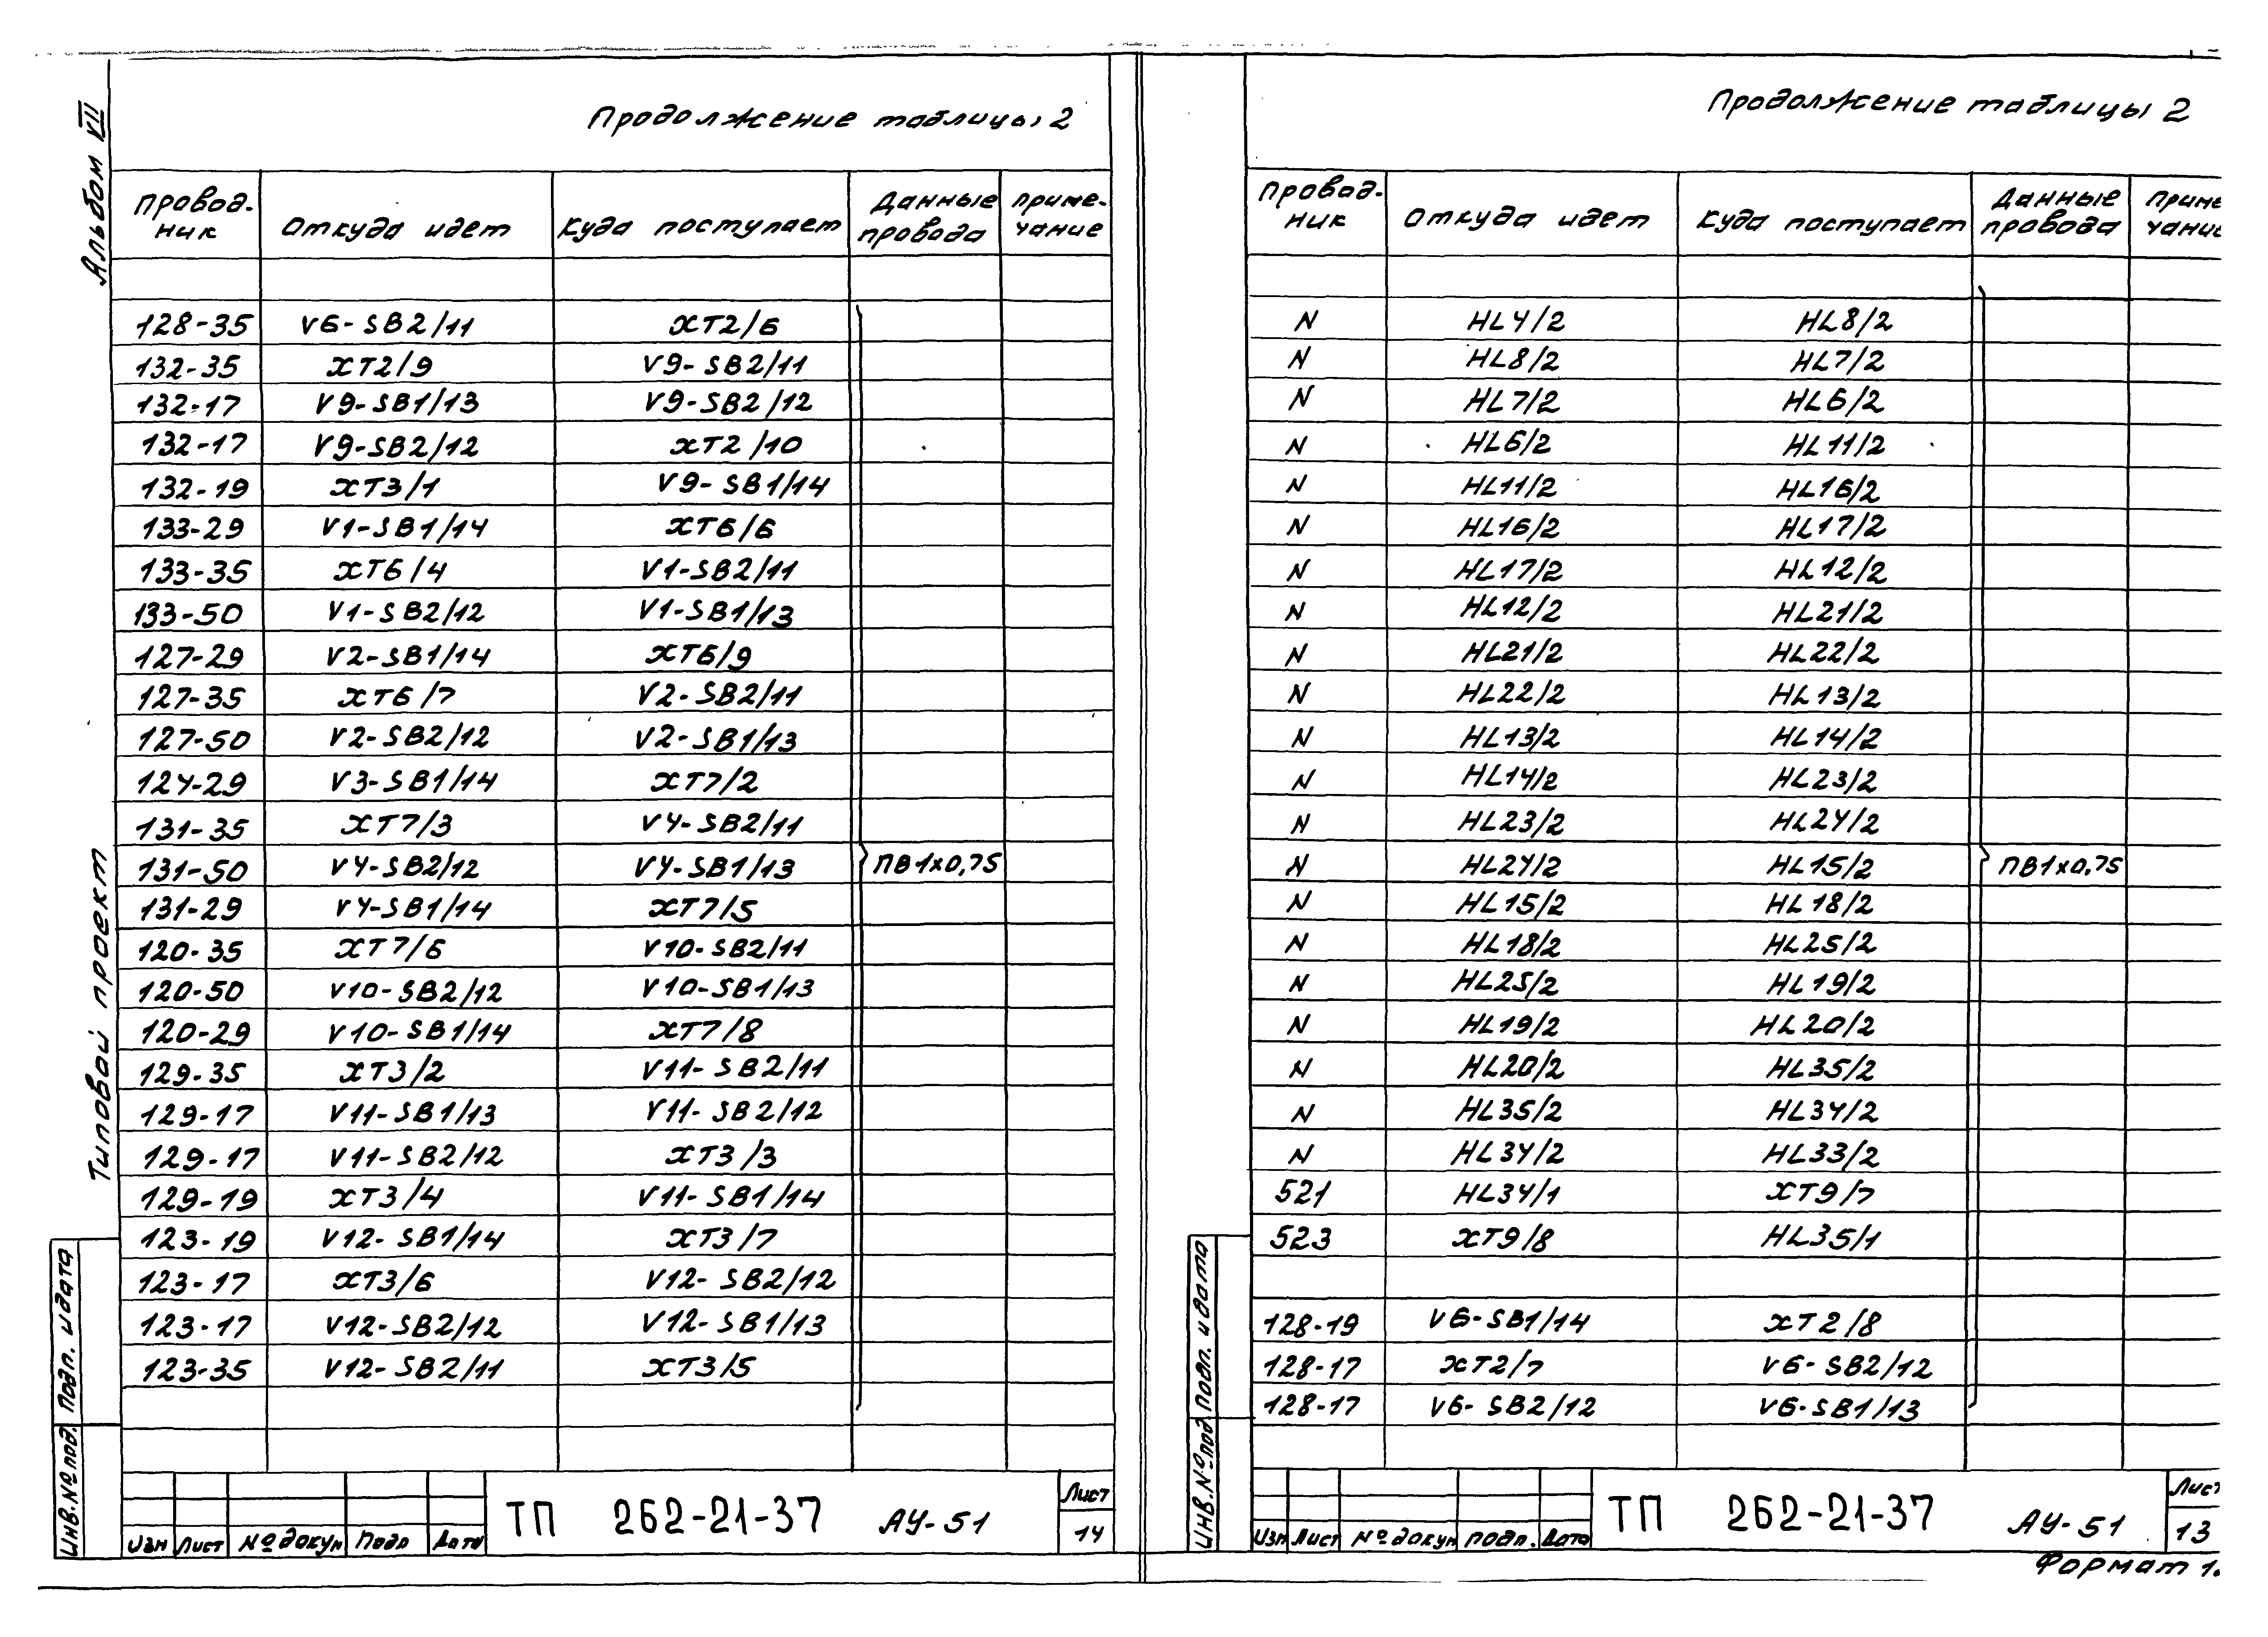 Альбом VII
Типовой проект
Инв.№подл. Подп. и дата
Продолжение таблицы 2
Провод-ник Откуда идет Куда поступает Данные провода Приме-чание
128-35 V6-SB2/11 XT2/6
132-35 XT2/9 V9-SB2/11
132-17 V9-SB1/13 V9-SB2/12
132-17 V9-SB2/12 XT2/10
132-19 XT3/1 V9-SB1/14
133-29 V1-SB1/14 XT6/6
133-35 XT6/4 V1-SB2/11
133-50 V1-SB2/12 V1-SB1/13
127-29 V2-SB1/14 XT6/9
127-35 XT6/7 V2-SB2/11
127-50 V2-SB2/12 V2-SB1/13
124-29 V3-SB1/14 XT7/2
131-35 XT7/3 V4-SB2/11
131-50 V4-SB2/12 V4-SB1/13 ПВ1х0,75
131-29 V4-SB1/14 XT7/5
120-35 XT7/6 V10-SB2/11
120-50 V10-SB2/12 V10-SB1/13
120-29 V10-SB1/14 XT7/8
129-35 XT3/2 V11-SB2/11
129-17 V11-SB1/13 V11-SB2/12
129-17 V11-SB2/12 XT3/3
129-19 XT3/4 V11-SB1/14
123-19 V12-SB1/14 XT3/7
123-17 XT3/6 V12-SB2/12
123-17 V12-SB2/12 V12-SB1/13
123-35 V12-SB2/11 XT3/5
Изм Лист № докум Подп Дата
ТП 262-21-37 АУ-51
Лист
14
Продолжение таблицы 2
Провод-ник Откуда идет Куда поступает Данные провода Приме чание
N HL4/2 HL8/2
N HL8/2 HL7/2
N HL7/2 HL6/2
N HL6/2 HL11/2
N HL11/2 HL16/2
N HL16/2 HL17/2
N HL17/2 HL12/2
N HL12/2 HL21/2
N HL21/2 HL22/2
N HL22/2 HL13/2
N HL13/2 HL14/2
N HL14/2 HL23/2
N HL23/2 HL24/2
N HL24/2 HL15/2 ПВ1х0,75
N HL15/2 HL18/2
N HL18/2 HL25/2
N HL25/2 HL19/2
N HL19/2 HL20/2
N HL20/2 HL35/2
N HL35/2 HL34/2
N HL34/2 HL33/2
521 HL34/1 XT9/7
523 XT9/8 HL35/1
128-19 V6-SB1/14 XT2/8
128-17 XT2/7 V6-SB2/12
128-17 V6-SB2/12 V6-SB1/13
Инв.№подл Подп. и дата
Изм Лист № докум подп. Дата
ТП 262-21-37 АУ-51
Лист
13
Формат 1